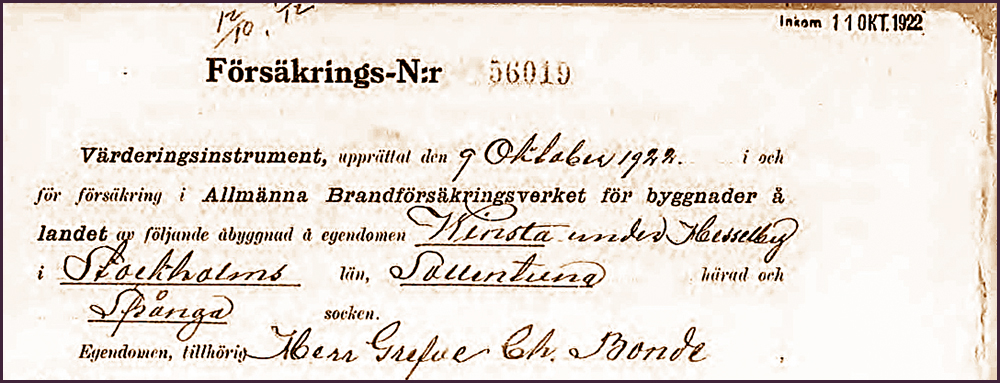 12/10. 12/12
Inkom 11 OKT. 1922
Försäkrings-N:r 56019
Värderingsinstrument, upprättat den 9 Oktober 1922. i och
för försäkring i Allmänna Brandförsäkringsverket för byggnader å
landet av följande åbyggnad å egendomen Winsta under Hesselby
i Stockholms län, Sollentuna härad och
Spånga socken.
Egendomen, tillhörig Herr Grefve Ch. Bonde